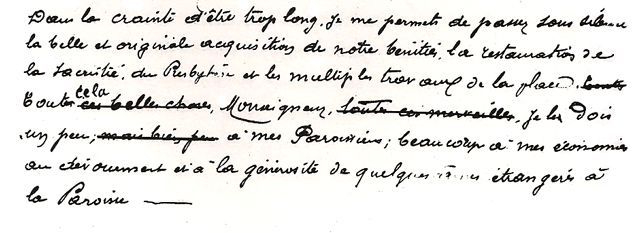 Dans la crainte d'être trop long, je me permets de passer sous silence
la belle et originale acquisition de notre bénitier, la restauration de
la Sacristie, du Presbytère et les multiples travaux de la place. toutes
toutes cela ces belles choses, Monseigneur, toutes ces merveilles, je les dois
un peu, mais bien peu à mes Paroissiens; beaucoup à mes économies
au dévouement et à la générosité de quelques étrangers à
la Paroisse